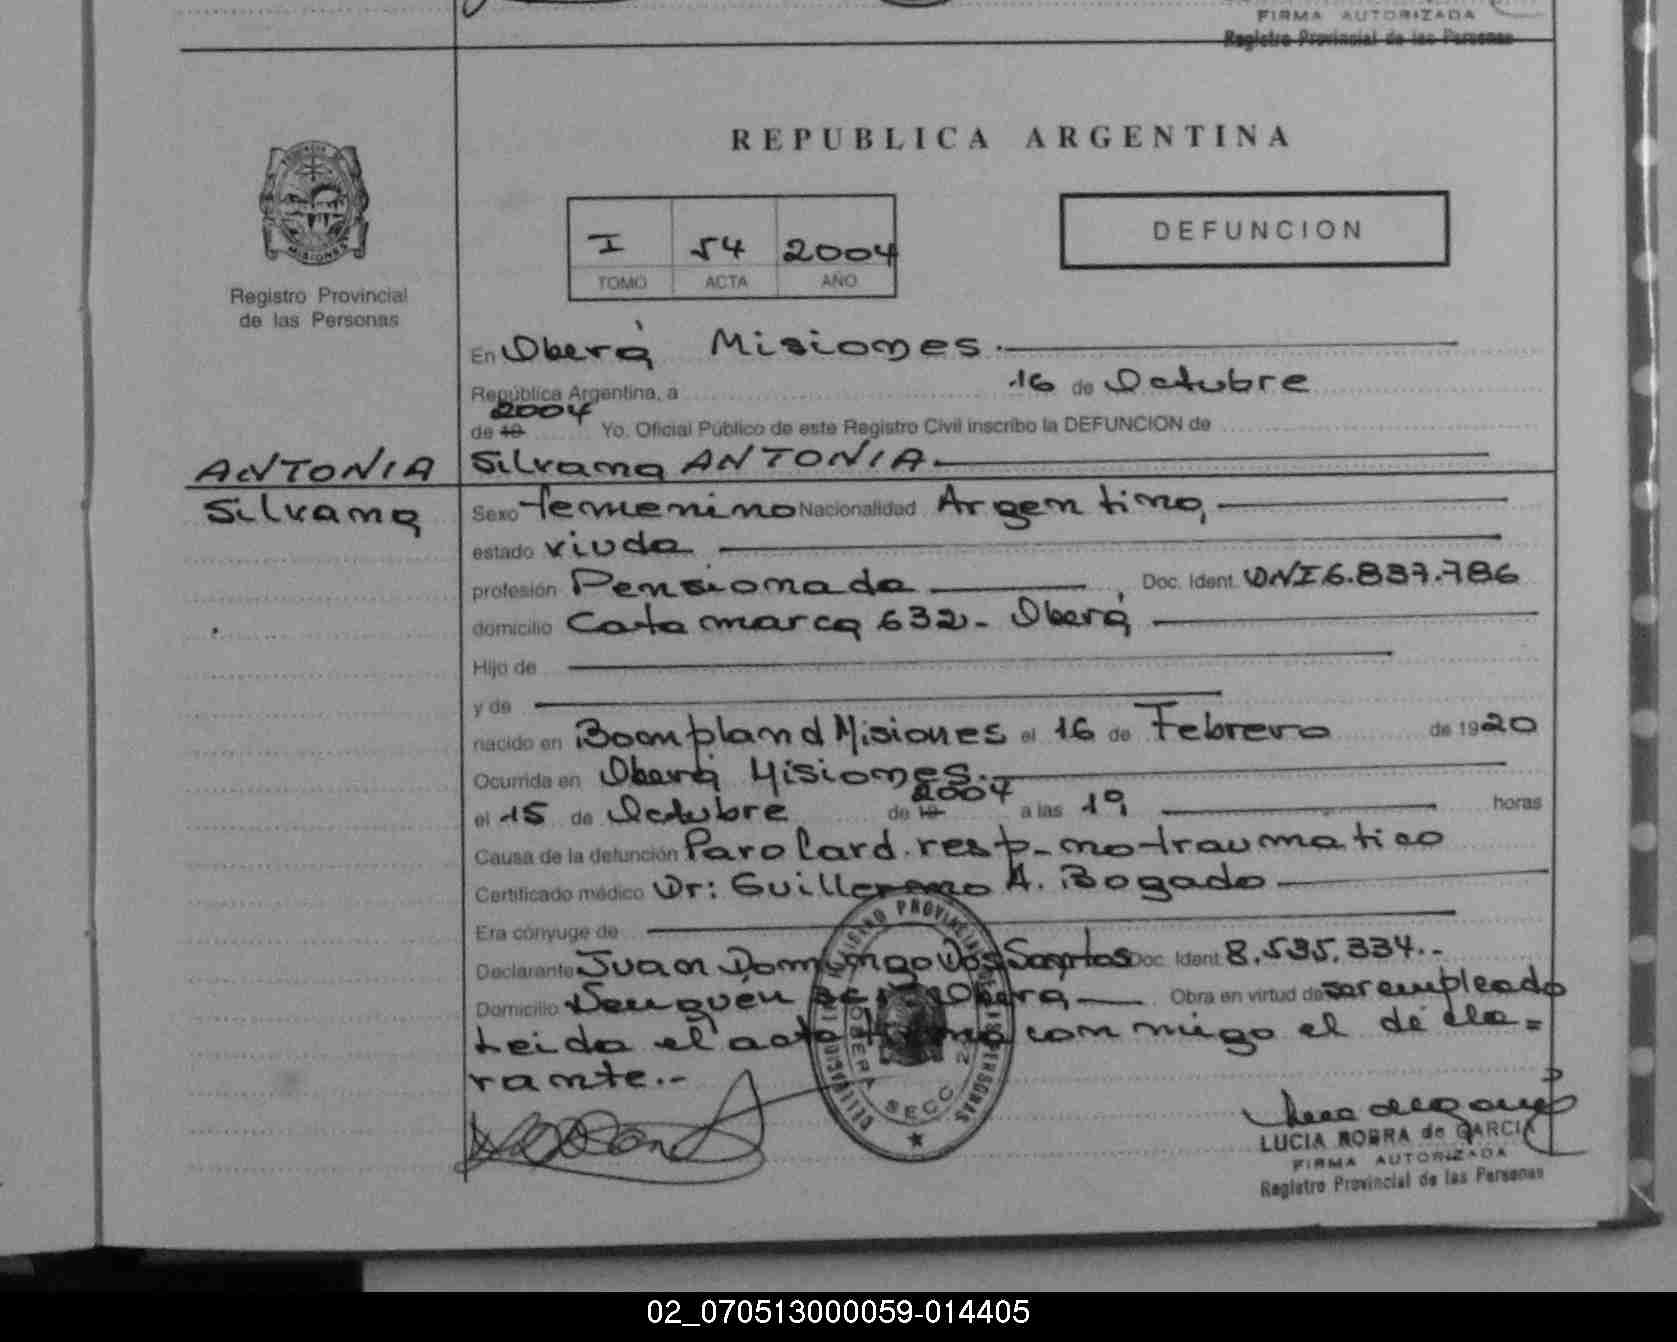 FIRMA AUTORIZADA
Registro Provincial de las Personas
REPUBLICA ARGENTINA
I 54 2004
TOMO ACTA AÑO
DEFUNCION
Registro Provincial
de las Personas
En Oberá Misiones.
República Argentina, a 16 de Octubre
2004
de 19 Yo. Oficial Público de este Registro Civil inscribo la DEFUNCION de
ANTONIA Silvana ANTONIA.
Silvana
Sexo femenino Nacionalidad Argentina,
estado viuda
profesión Pensionada Doc. Ident. DNI 6.837.786
domicilio Catamarca 632- Oberá
Hijo de
y de
nacido en Boompland Misiones el 16 de Febrero de 1920
Ocurrida en Oberá Misiones.
2004
el 15 de Octubre de 19 a las 19, horas
Causa de la defunción Paro Card. resp- no traumatico
Certificado médico Dr: Guillermo A. Bogado
Era cónyuge de
Declarante Juan Domingo Dos Santos Doc. Ident. 8.535.334.-
Domicilio Oberá Obra en virtud de ser empleado
Leida el acta firma conmigo el decla=
rante.-
SECC
LUCIA ROBRA de GARCIA
FIRMA AUTORIZADA
Registro Provincial de las Personas
02_070513000059-014405